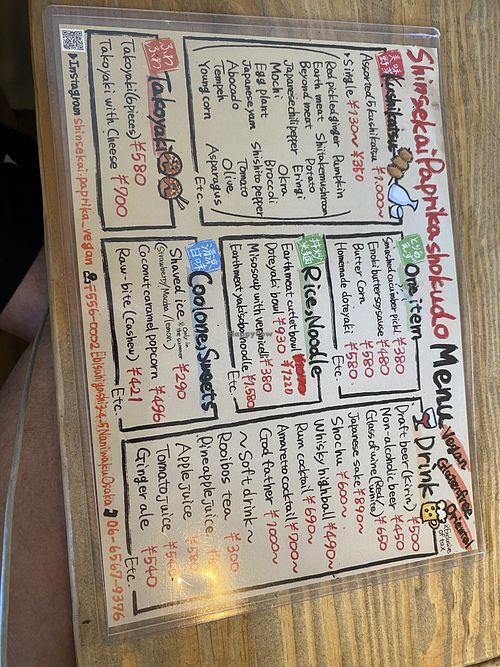 Shinsekai Paprika shokudo Menu
Vegan
Gluten free
Oriental
美味
野菜
Kushikatsu
Assorted 5 kushikatsu ¥1,000~
Single ¥130~¥350
Red pickled ginger Pumpkin
Earth meat Shiitake mushroom
Beyond meat Potato
Japanese chili pepper Eringi
Mochi Okra
Egg plant Broccoli
Japanese yam Shishito pepper
Abocado Tomato
Tempeh Olive
Young corn Asparagus
Etc.
ふわ
ふわ
Takoyaki
Takoyaki (6 pieces) ¥580
Takoyaki with Cheese ¥700
One item
Smashed cucumber pickl ¥380
Enoki butter soy sauce ¥480
Butter Corn ¥580
Homemade doteyaki ¥580
Etc.
Rice, Noodle
Earth meat cutlet bowl ¥1220
Doteyaki bowl ¥930
Miso soup with vermicelli ¥380
Earth meat yakisoba noodle ¥1,580
Etc.
Cool one, Sweets
Shaved ice ※only in the summer ¥290
(Strawberry, Matcha, Lemon)
Coconut caramel popcorn ¥496
Raw bite (Cashew) ¥421
Etc.
Drink
Draft beer (Kirin) ¥500
Non-alcoholic beer ¥450
Glass of wine (Red/White) ¥650
Japanese sake ¥890~
Sho-chu ¥600~
Whisky highball ¥490~
Rum cocktail ¥690~
Amaretto cocktail ¥700~
God father ¥1000~
~Soft drink~
Rooibos tea ¥300
Pineapple juice
Apple juice
Tomato juice
Ginger ale ¥540
Etc.
Instagram Shinsekai.paprika_vegan 〒556-0002 Ebisuhigashi 3-4-5 Naniwaku Osaka 06-6567-9376